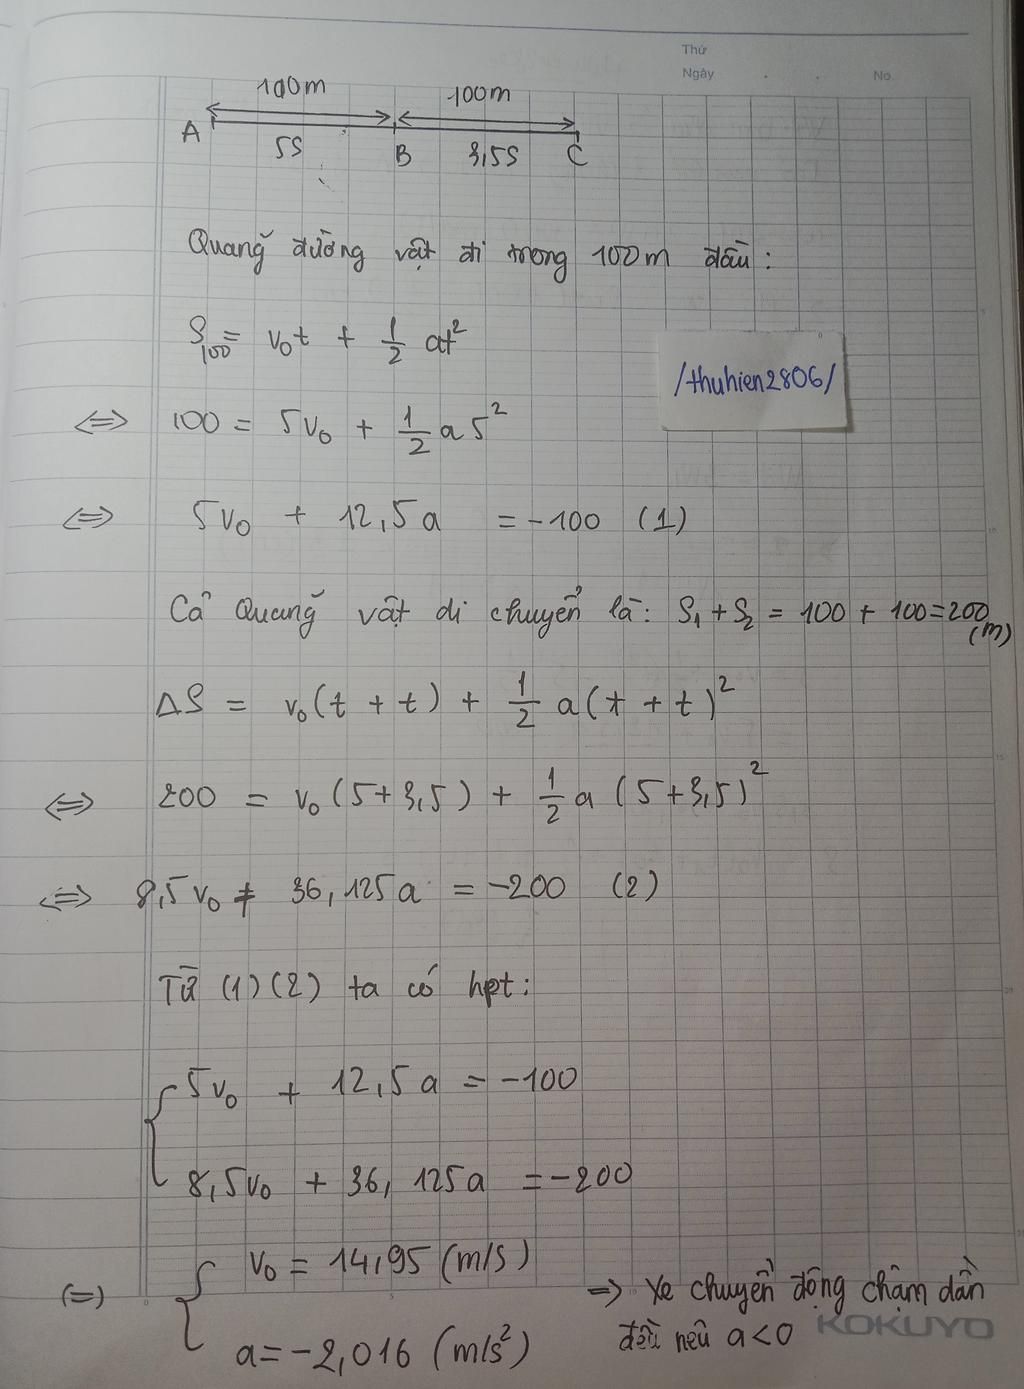 Thứ
Ngày
No.
100m 100m
A 5s B 3,5s C
Quãng đường vật đi trong 100m đầu:
S₁₀₀ = v₀t + 1/2 at²
/thuhien2806/
⇔ 100 = 5v₀ + 1/2 a 5²
⇔ 5v₀ + 12,5a = -100 (1)
Cả Quãng vật di chuyển là: S₁ + S₂ = 100 + 100 = 200 (m)
ΔS = v₀(t + t) + 1/2 a(t + t)²
⇔ 200 = v₀(5+3,5) + 1/2 a (5+3,5)²
⇔ 8,5v₀ + 36,125a = -200 (2)
Từ (1)(2) ta có hpt:
5v₀ + 12,5a = -100
8,5v₀ + 36,125a = -200
(=) v₀ = 14,95 (m/s)
a = -2,016 (m/s²)
=> Xe chuyển động chậm dần
đều nếu a<0
KOKUYO